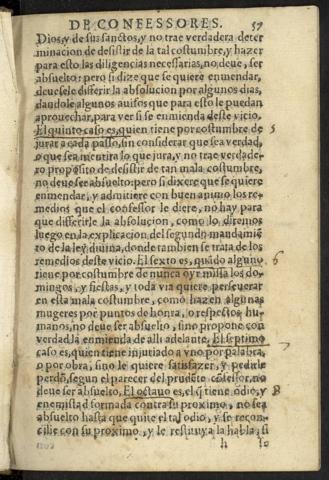 DE CONFESSORES. 57
Dios, y de sus sanctos, y no trae verdadera deter
minacion de desistir de la tal costumbre, y hazer
para esto las diligencias necessarias, no deue, ser
absuelto: pero si dize que se quiere enmendar,
deuesele diferir la absolucion por algunos dias,
dandole algunos auisos que para esto le puedan
aprouechar, para ver si se emmienda deste vicio.
El quinto caso es, quien tiene por costumbre de 5
jurar a cada passo, sin considerar que sea verdad,
o que sea mentira lo que jura, y no trae verdade-
ro proposito de desistir de tan mala costumbre,
no deue ser absuelto: pero si dixere que se quiere
enmendar, y admitiere con buen animo los re-
medios que el confessor le diere, no hay para
que differirle la absolucion, como lo diremos
luego en la explicacion del segundo mandamiē
to de la ley diuina, donde tambien se trata de los
remedios deste vicio. El sexto es, quādo alguno 6
tiene por costumbre de nunca oyr missa los do-
mingos, y fiestas, y toda via quiere perseuerar
en esta mala costumbre, como hazen algunas
mugeres por puntos de honra, o respectos hu-
manos, no deue ser absuelto, sino propone con
verdad la enmienda de alli adelante. El septimo 7
caso es, quien tiene injuriado a vno por palabra,
o por obra, sino le quiere satisfazer, y pedirle
perdō, segun el parecer del prudēte cōfessor, no
deue ser absuelto. El octauo es, el q̃ tiene odio, y 8
enemistad formada contra su proximo, no sea
absuelto hasta que quite el tal odio, y se recon-
cilie con su proximo, y le restituya la habla, si
h lo